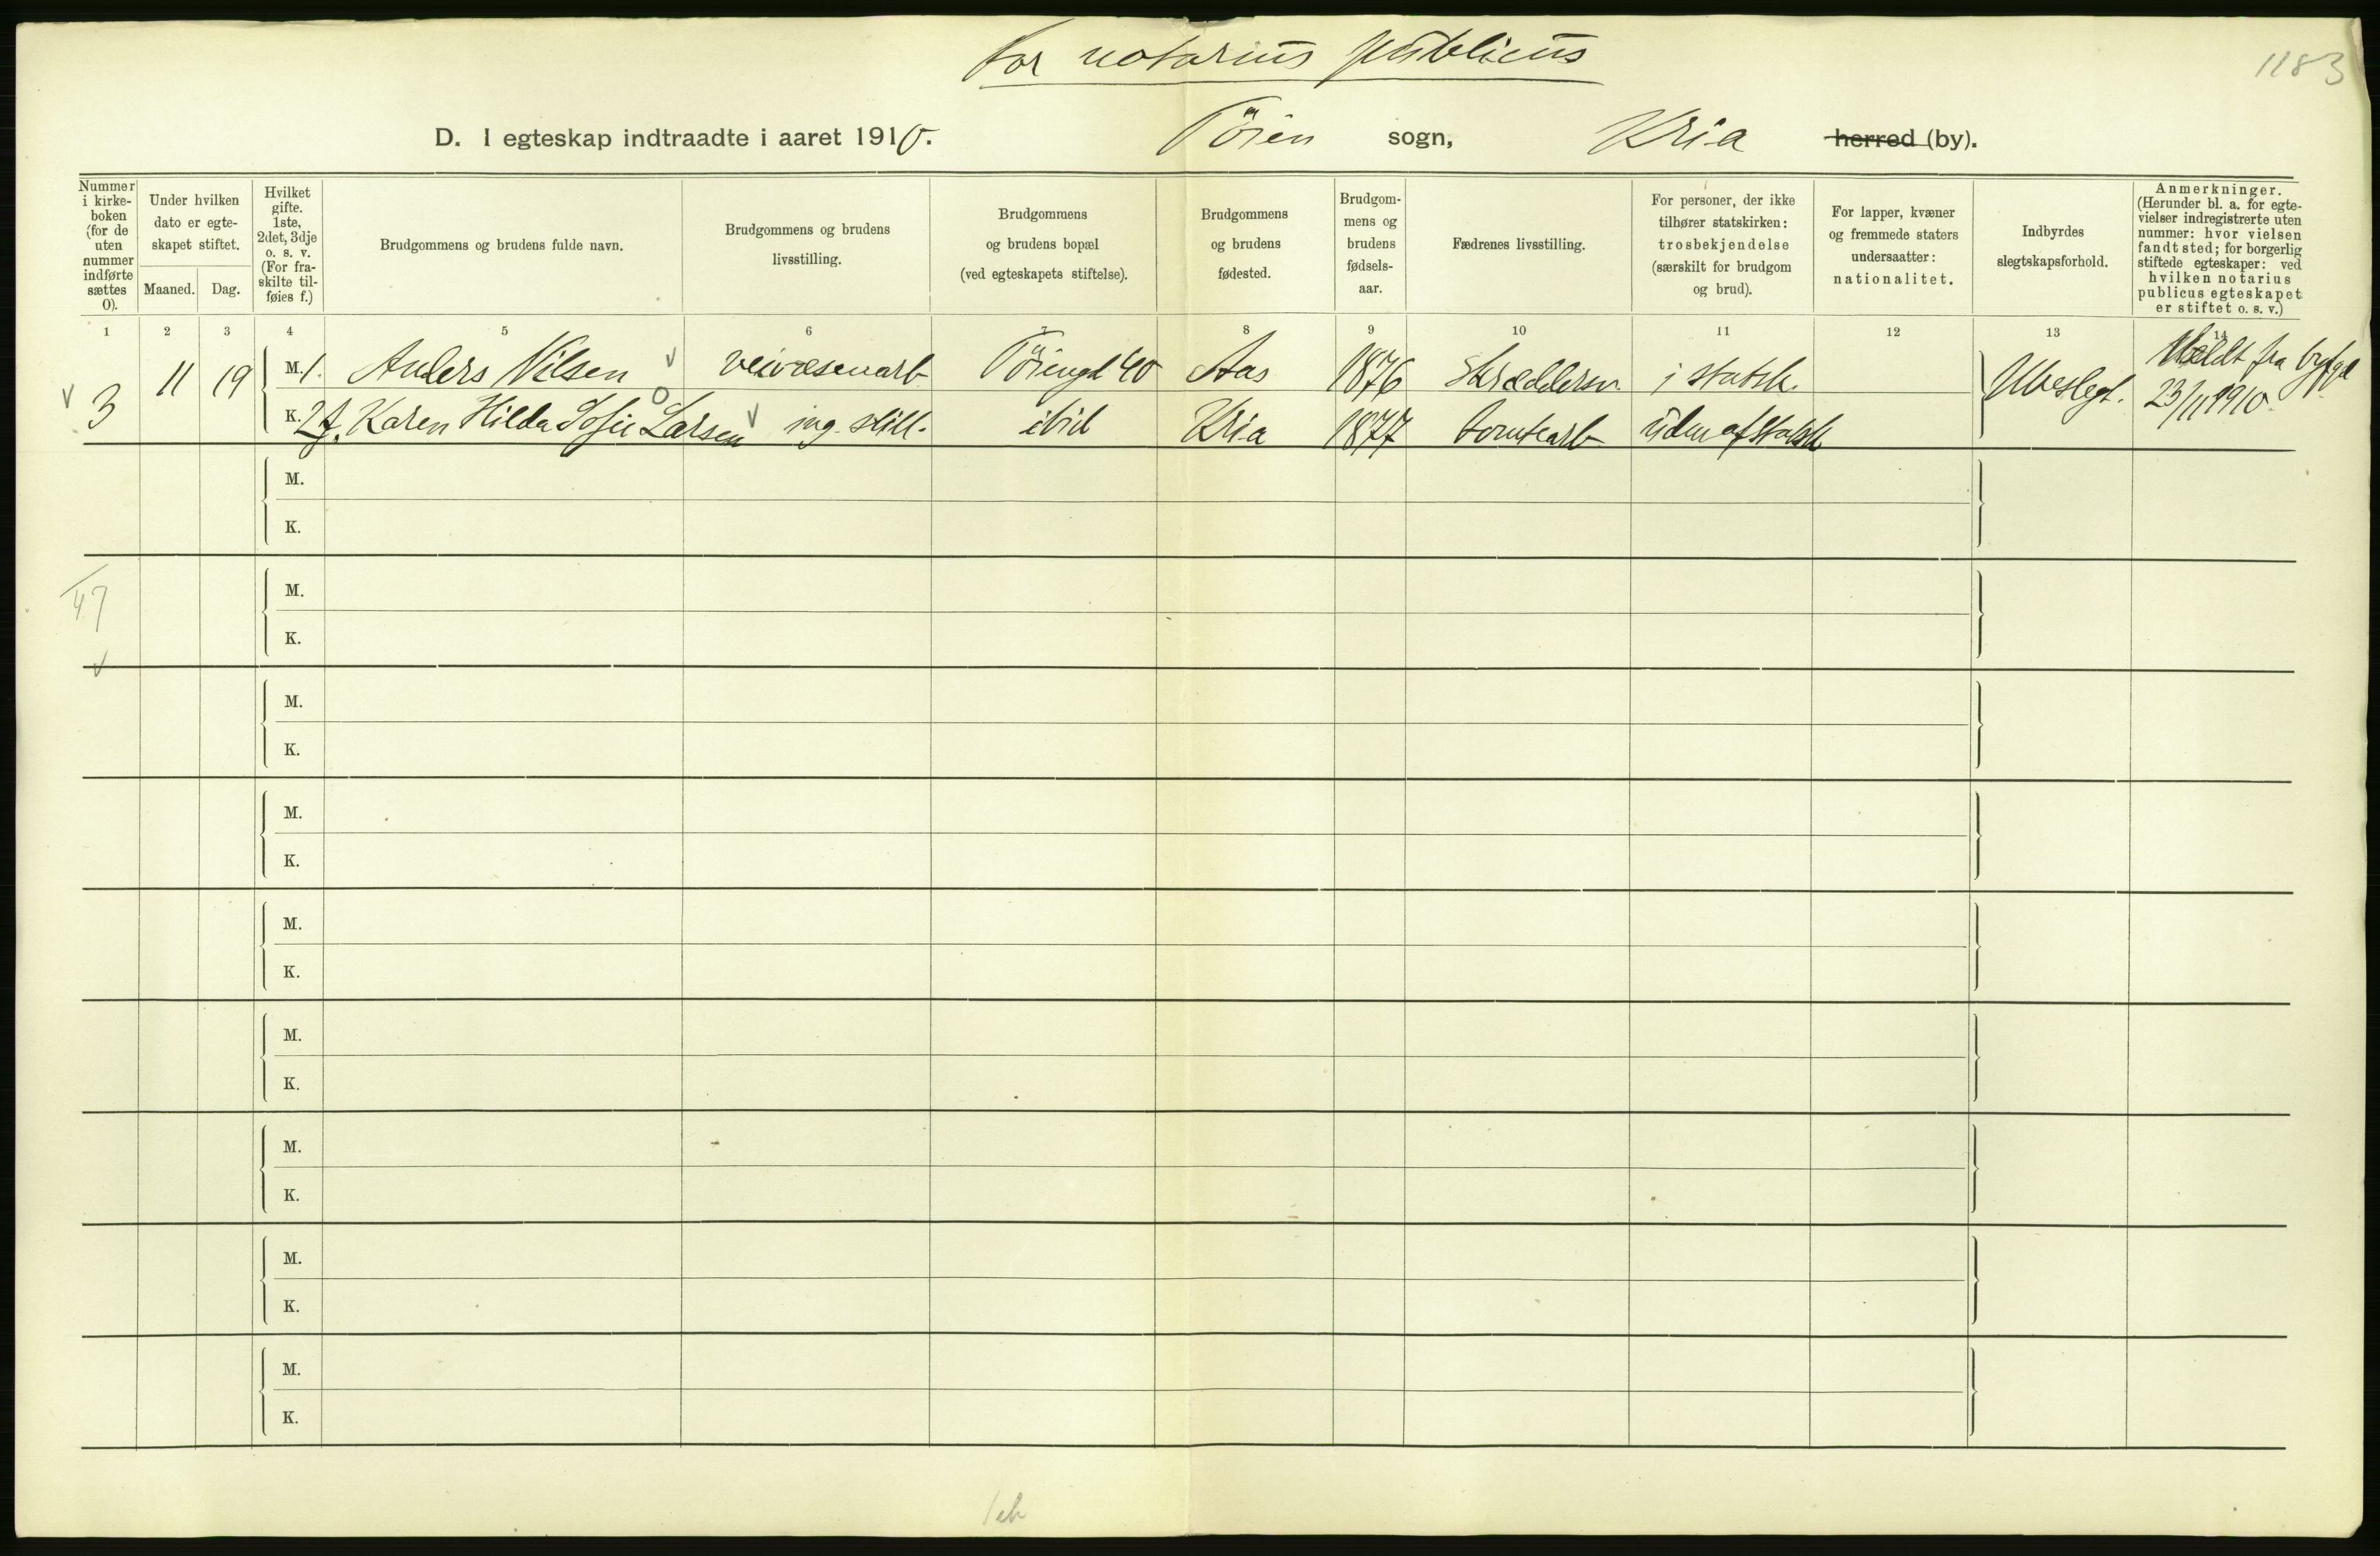 for notarius publicus
1183
D. I egteskap indtraadte i aaret 1910. Töien sogn, Kria herred (by).
Nummer i kirkeboken (for de uten nummer indførte sættes 0).
Under hvilken dato er egteskapet stiftet.
Maaned. Dag.
Hvilket gifte. 1ste, 2det, 3dje o. s. v. (For fraskilte tilføies f.)
Brudgommens og brudens fulde navn.
Brudgommens og brudens livsstilling.
Brudgommens og brudens bopæl (ved egteskapets stiftelse).
Brudgommens og brudens fødested.
Brudgommens og brudens fødselsaar.
Fædrenes livsstilling.
For personer, der ikke tilhører statskirken: trosbekjendelse (særskilt for brudgom og brud).
For lapper, kvæner og fremmede staters undersaatter: nationalitet.
Indbyrdes slegtskapsforhold.
Anmerkninger. (Herunder bl. a. for egtevielser indregistrerte uten nummer: hvor vielsen fandt sted; for borgerlig stiftede egteskaper: ved hvilken notarius publicus egteskapet er stiftet o. s. v.)
1 2 3 4 5 6 7 8 9 10 11 12 13 14
3 11 19 M. 1. Anders Nilsen veivæsenarb Töiengd 40 Aas 1876 Skræddersv. i statsk. Ubeslegt. Meldt fra byfgd 23/11 1910.
K. 2 f. Karen Hilda Sofie Larsen ing. still. ibid Kria 1877 tomtearb uden af statsk
M.
K.
47
M.
K.
M.
K.
M.
K.
M.
K.
M.
K.
M.
K.
M.
K.
M.
K.